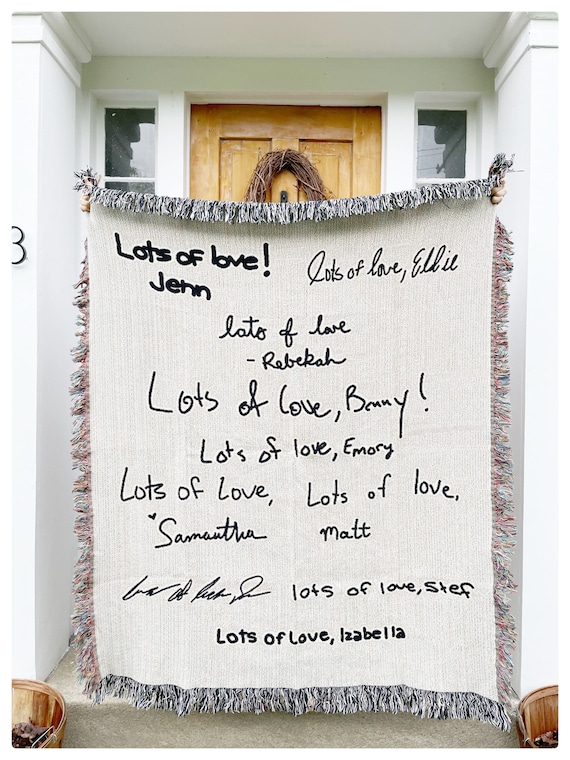 3
Lots of love!
Jenn
lots of love, Eddie
lots of love
- Rebekah
Lots of Love, Benny!
Lots of love, Emory
Lots of Love,
Samantha
Lots of love,
Matt
lots of love, Stef
Lots of Love, Izabella